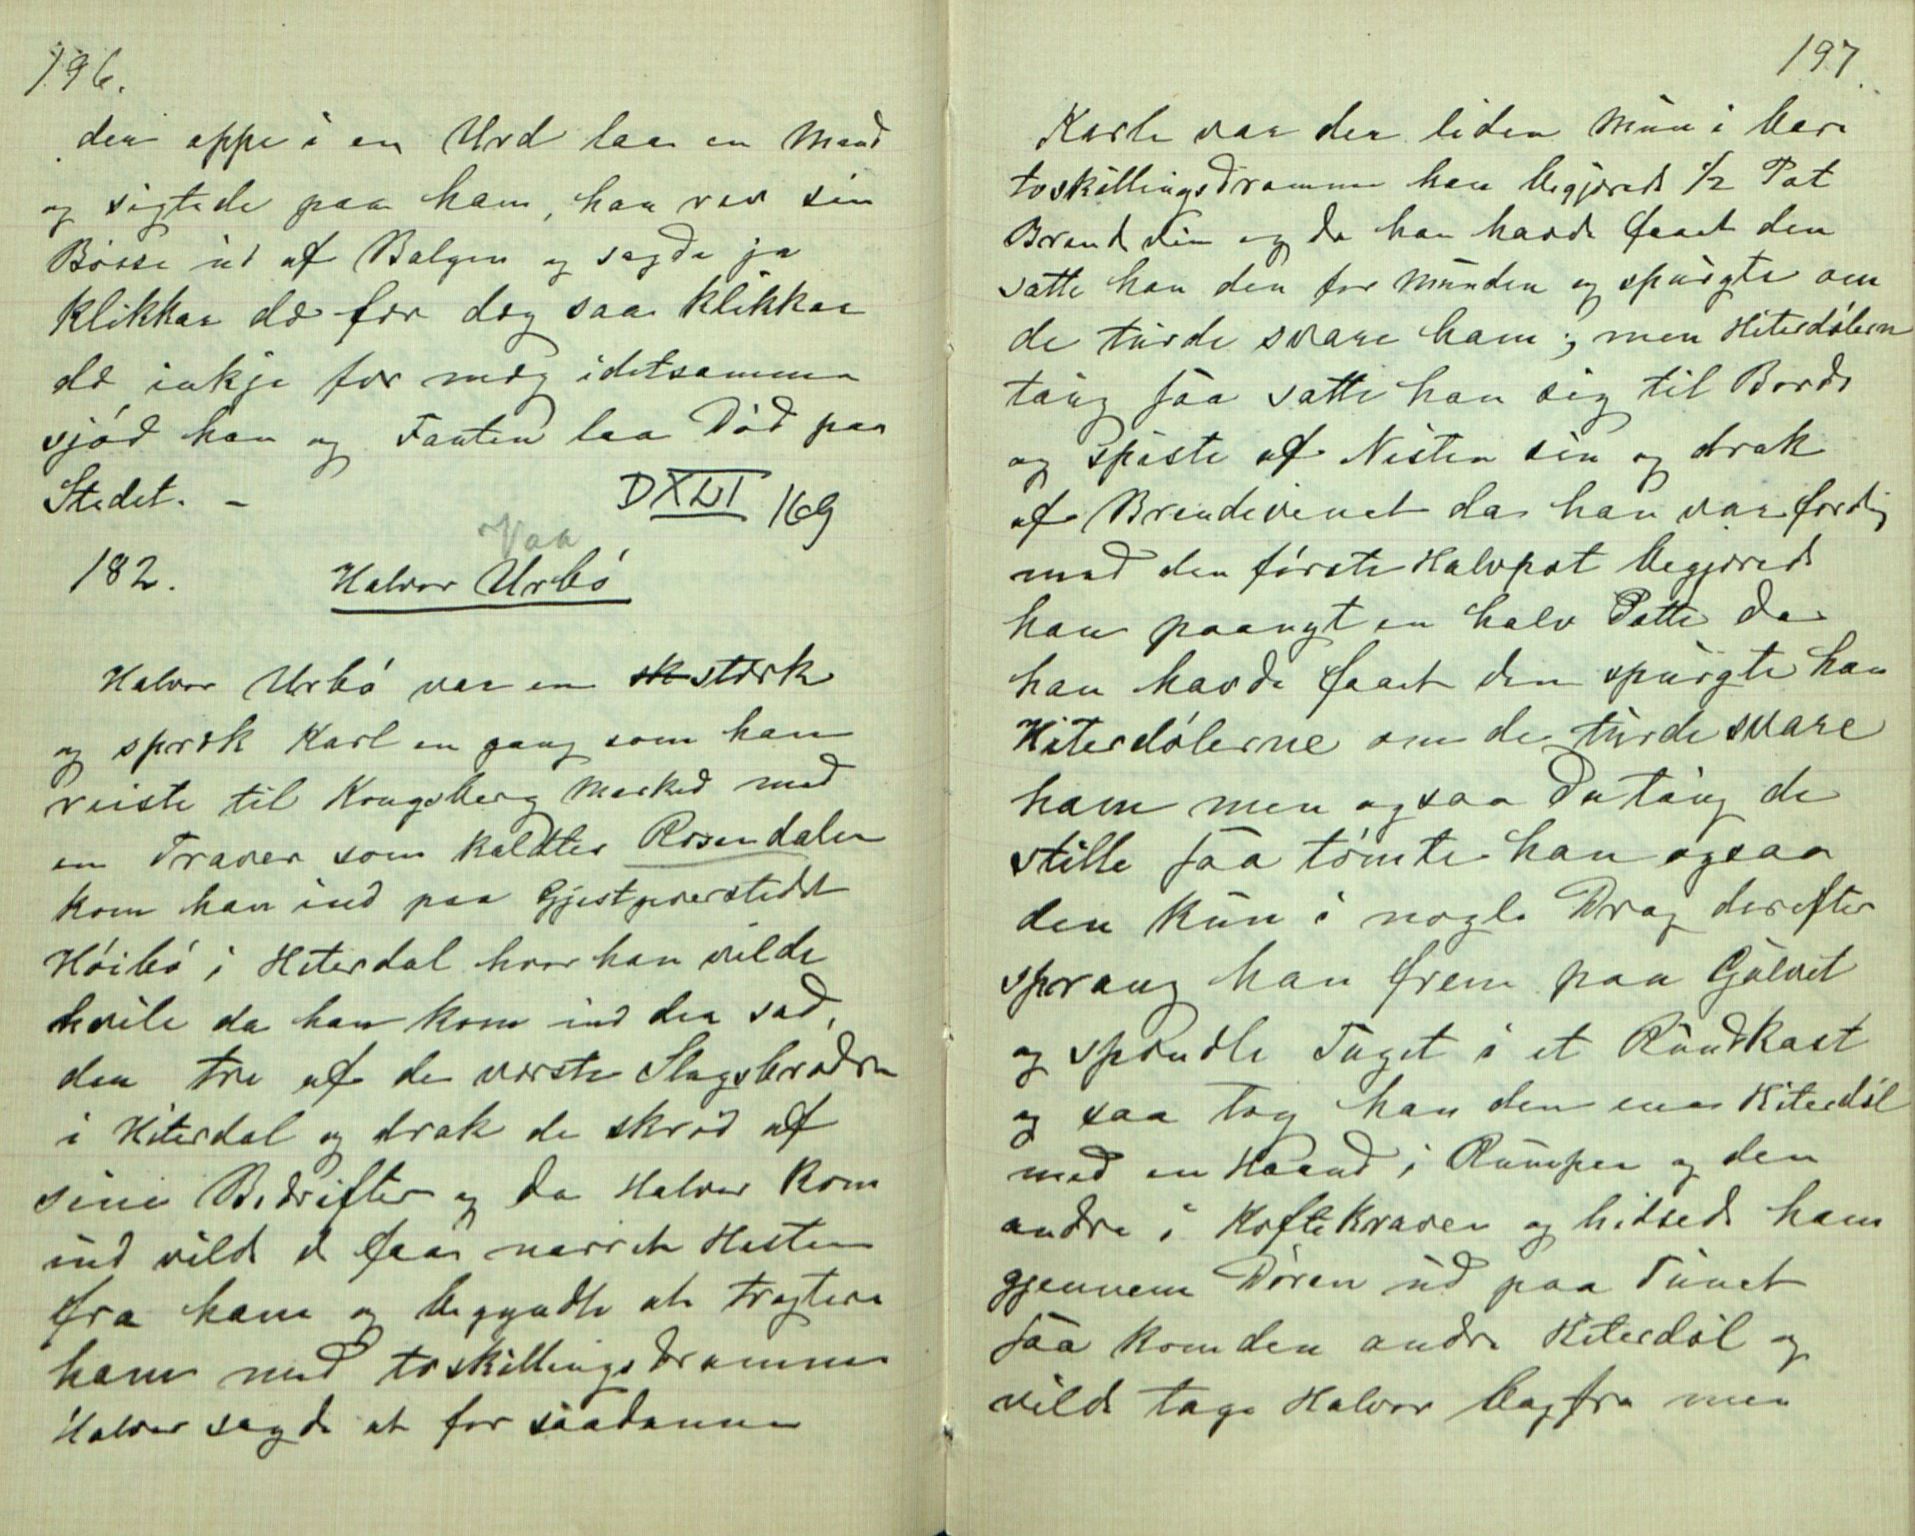 196.
der oppe i en Urd laa en Mand
og sigtede paa ham, han rev sin
Bösse ud af Balgen og sagde ja
klikkar dæ for deg saa klikkar
dæ inkje for meg idetsamme
sjód han og Fanten laa Död paa
Stedet. -
DXLI 169
Vaa
182. Halvor Urbö
Halvor Urbö var en sk stærk
og spræk Karl en gang som han
reiste til Kongsberg Marked med
en Traver som kaldtes Rosendalen
kom han ind paa Gjestgiverstedet
Höibö i Hiterdal hvor han vilde
hvile da han kom ind der sad,
der tre af de værste Slagsbrødre
i Hiterdal og drak de skrød af
sine Bedrifter og da Halvor kom
ind vilde de faa narret Hesten
fra ham og begyndte at tragtere
ham med toskillingsdramme
Halvor sagde at for saadanne
197.
Karle var der liden Mun i bare
toskillingsdramme han begjærede 1/2 Pot
Brendevin og da han havde faaet den
satte han den for Munden og spurgte om
de turde svare ham; men Hiterdölern
taug saa satte han sig til Bords
og spiste af Nisten sin og drak
af Brendevinet da han var ferdig
med den förste Halvpot begjærede
han paanyt en halv Potte da
han havde faaet den spurgte han
Hiterdölerne om de turde svare
ham men ogsaa Da taug de
stille saa tömte han ogsaa
den kun i nogle Drag derefter
sprang han frem paa Gulvet
og spendte Taget i et Rundkast
og saa tog han den ene Hiterdöl
med en Haand i Rumpen og den
andre i Koftekraven og hidsede ham
gjennem Dören ud paa Tunet
saa kom den andre Hiterdöl og
vilde tage Halvor bagfra men